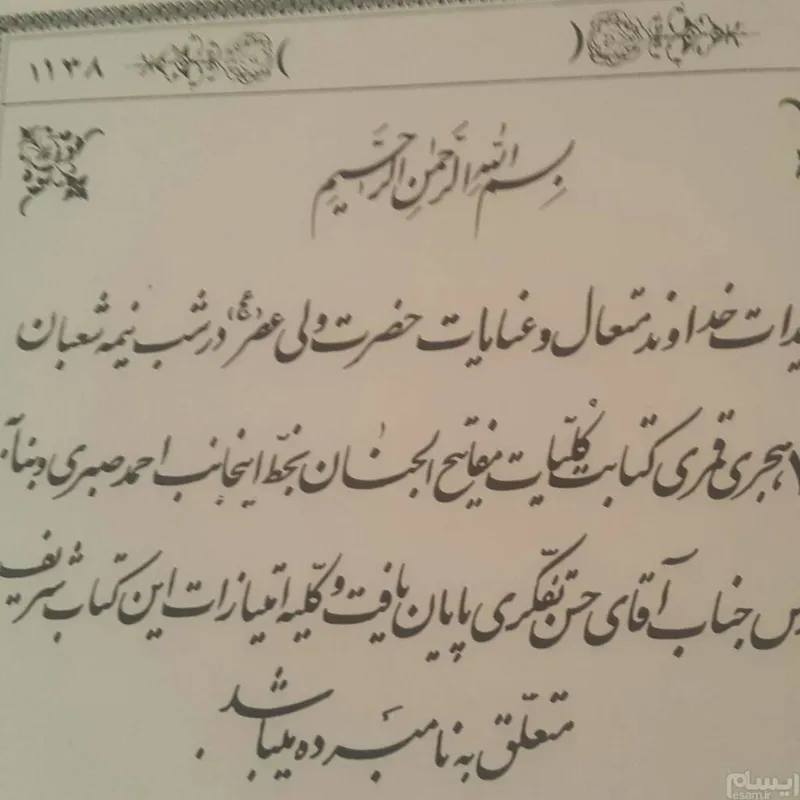 ۱۱۳۸
بِسْمِ اللهِ الرَّحْمٰنِ الرَّحِیْمِ
خداوند متعال و عنایات حضرت ولی عصر (عج) در شب نیمه شعبان
هجری قمری کتابت کلّیات مفاتیح الجنان بخطّ اینجانب احمد صبری و بنا
جناب آقای حسن تفکّری پایان یافت و کلّیه امتیازات این کتاب شریف
متعلّق به نامبرده میباشد .
ایسام
esam.ir